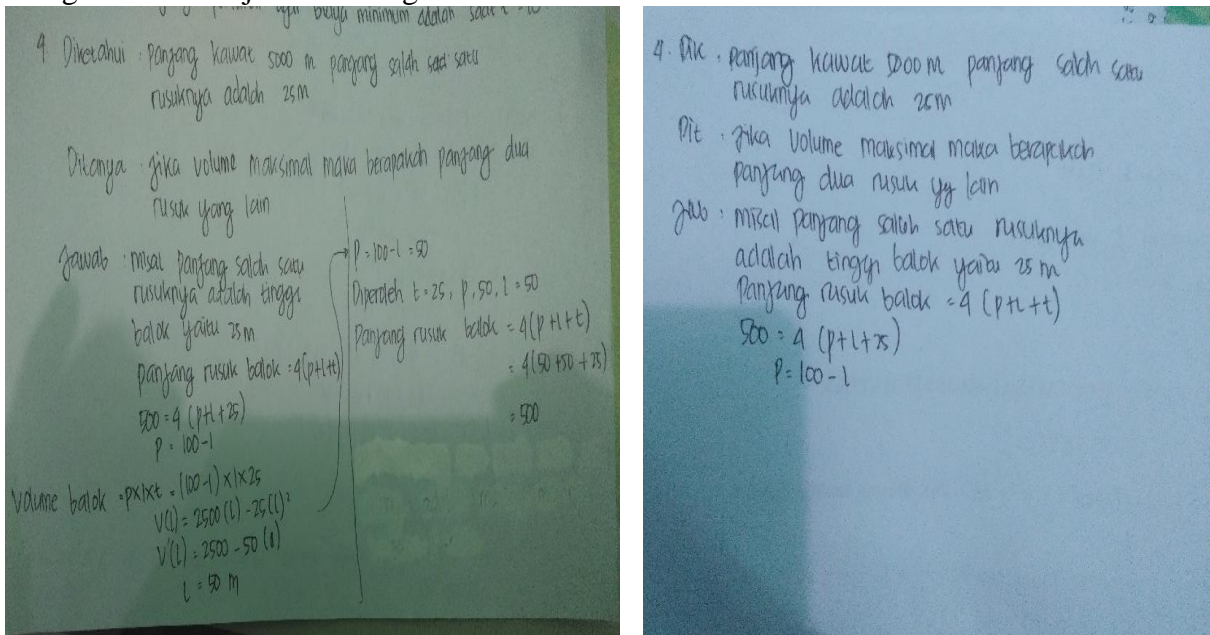 biaya minimum adalah saat
4 Diketahui : Panjang kawat 5000 m panjang salah satu
rusuknya adalah 25m
Ditanya : jika volume maksimal maka berapakah panjang dua
rusuk yang lain
Jawab : misal panjang salah satu
rusuknya adalah tinggi
balok yaitu 25m
panjang rusuk balok = 4(p+l+t)
500 = 4 (p+l+25)
P = 100-l
Volume balok = pxlxt = (100-l) x l x 25
V(l) = 2500(l) - 25(l)²
V'(l) = 2500 - 50(l)
l = 50 m
P = 100-l = 50
Diperoleh t=25, p, 50, l = 50
Panjang rusuk balok = 4(p+l+t)
= 4(50+50+25)
= 500
4. Dik . panjang kawat 5000m panjang salah satu
rusuknya adalah 25m
Dit . jika volume maksimal maka berapakah
panjang dua rusuk yg lain
Jwb : misal panjang salah satu rusuknya
adalah tinggi balok yaitu 25 m
Panjang rusuk balok = 4 (p+l+t)
500 = 4 (p+l+25)
P = 100-l